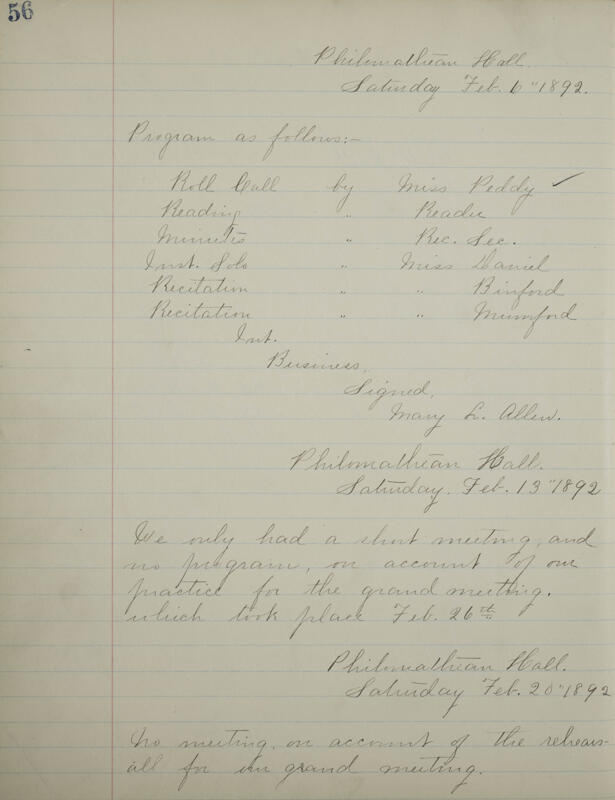 56
Philomathean Hall.
Saturday Feb. 6" 1892.
Program as follows:-
Roll Call by Miss Peddy ✓
Reading " Reader
Minutes " Rec. Sec.
Inst. Solo " Miss Daniel
Recitation " " Binford
Recitation " " Mumford
Int.
Business,
Signed,
Mary L. Allen.
Philomathean Hall.
Saturday, Feb. 13" 1892
We only had a short meeting, and
no program, on account of our
practice for the grand meeting.
which took place Feb. 26th
Philomathean Hall.
Saturday Feb. 20" 1892
No meeting, on account of the rehears-
all for the grand meeting.